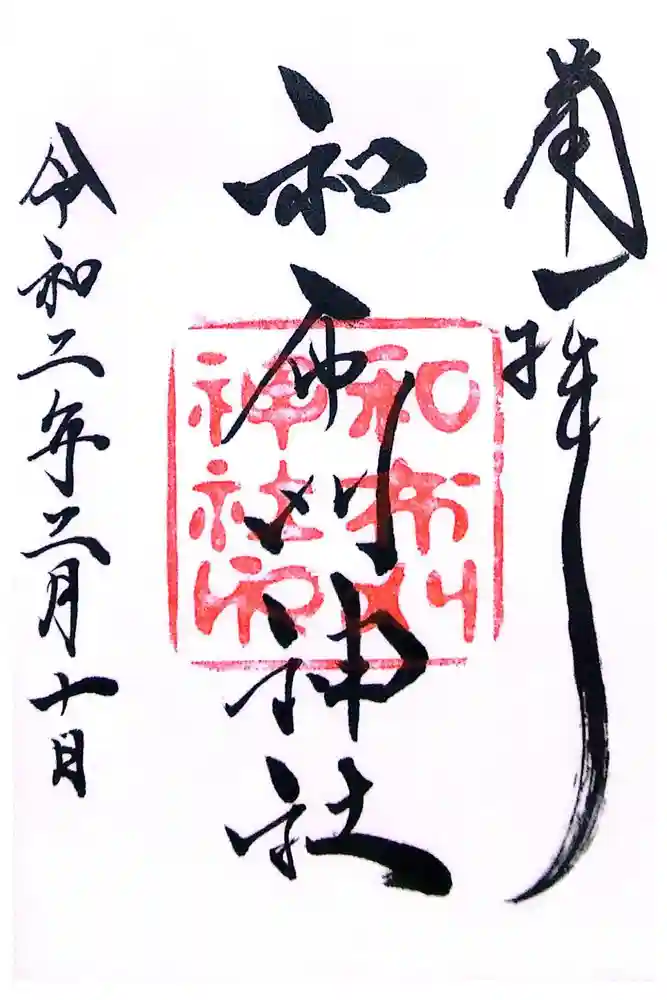 奉拝
和布刈神社
和布刈
神社印
令和二年三月十日